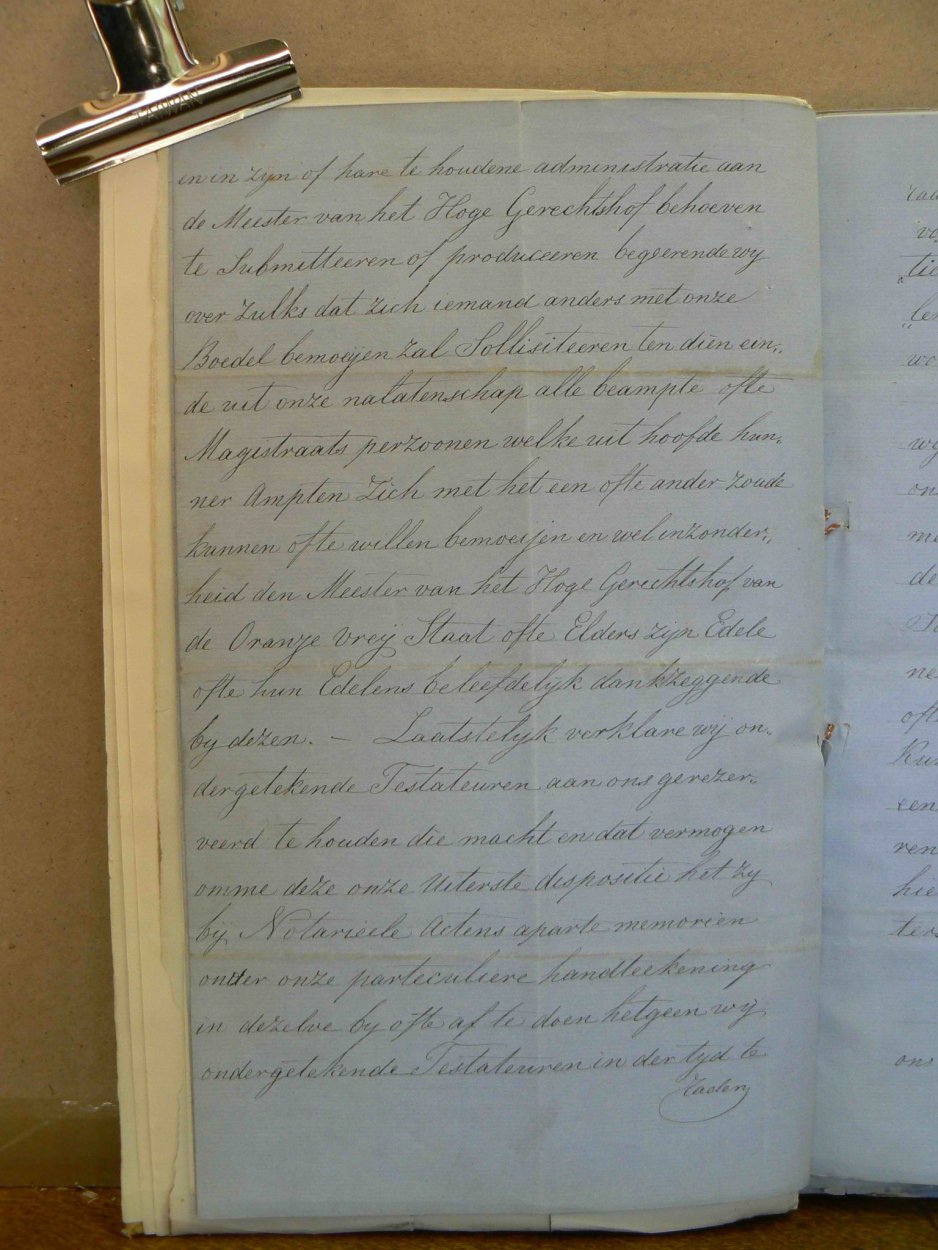 TAIWAN
en in zijn of hare te houdene administratie aan
de Meester van het Hoge Gerechtshof behoeven
te Submitteeren of produceeren begeerende wy
over zulks dat zich iemand anders met onze
Boedel bemoeijen zal Sollisiteeren ten dien ein„
de uit onze nalatenschap alle beampte ofte
Magistraats perzoonen welke uit hoofde hun„
ner Ampten Zich met het een ofte ander zoude
kunnen ofte willen bemoeijen en wel inzonder„
heid den Meester van het Hoge Gerechtshof van
de Oranje Vreij Staat ofte Elders zijn Edele
ofte hun Edelens beleefdelijk dankzeggende
by dezen. — Laatstelijk verklare wij on„
dergetekende Testateuren aan ons gerezer„
veerd te houden die macht en dat vermogen
omme deze onze Uiterste dispositie het zy
bij Notarieele Actens aparte memorien
onder onze particuliere handteekening
in dezelve by ofte af te doen hetgeen wij
ondergetekende Testateuren in der tyd te
raden